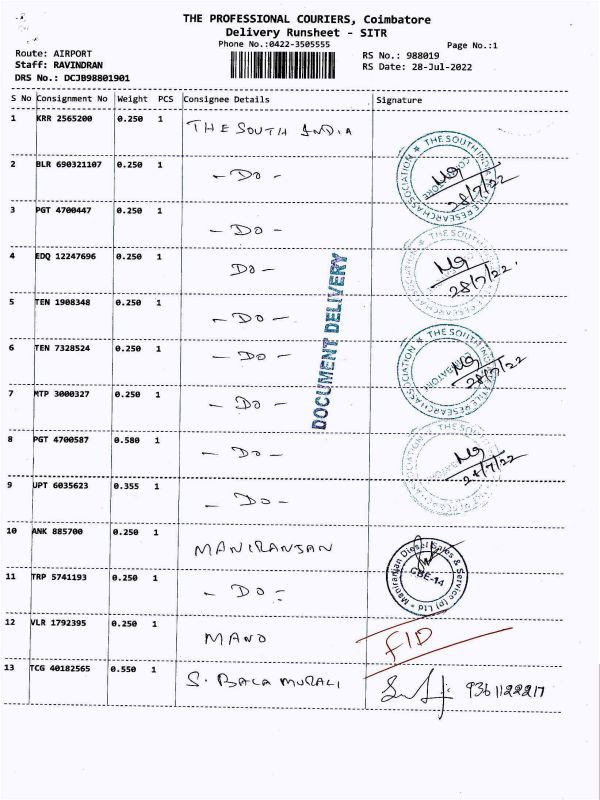 THE PROFESSIONAL COURIERS, Coimbatore
Delivery Runsheet - SITR
Phone No.:0422-3505555
Page No.:1
Route: AIRPORT
RS No.: 988019
Staff: RAVINDRAN
RS Date: 28-Jul-2022
DRS No.: DCJB98801901
S No Consignment No Weight PCS Consignee Details Signature
1 KRR 2565200 0.250 1 THE SOUTH INDIA
THE SOUTH INDIA TEXTILE RESEARCH ASSOCIATION
COIMBATORE
2 BLR 690321107 0.250 1 - DO -
28/7/22
3 PGT 4700447 0.250 1 - DO -
THE SOU
4 EDQ 12247696 0.250 1 DO -
28/7/22.
DOCUMENT DELIVERY
5 TEN 1908348 0.250 1 - DO -
6 TEN 7328524 0.250 1 - DO -
THE SOUTH INDIA TEXTILE RESEARCH ASSOCIATION
28/7/22
7 MTP 3000327 0.250 1 - DO -
8 PGT 4700587 0.580 1 - DO -
THE SOU
9 UPT 6035623 0.355 1 - DO -
10 ANK 885700 0.250 1 MANIRANJAN
Maniranjan Diesel Sales & Service (p) Ltd
CBE-14
11 TRP 5741193 0.250 1 - DO -
12 VLR 1792395 0.250 1 MANO
FID
13 TCG 40182565 0.550 1 S. BALA MURALI